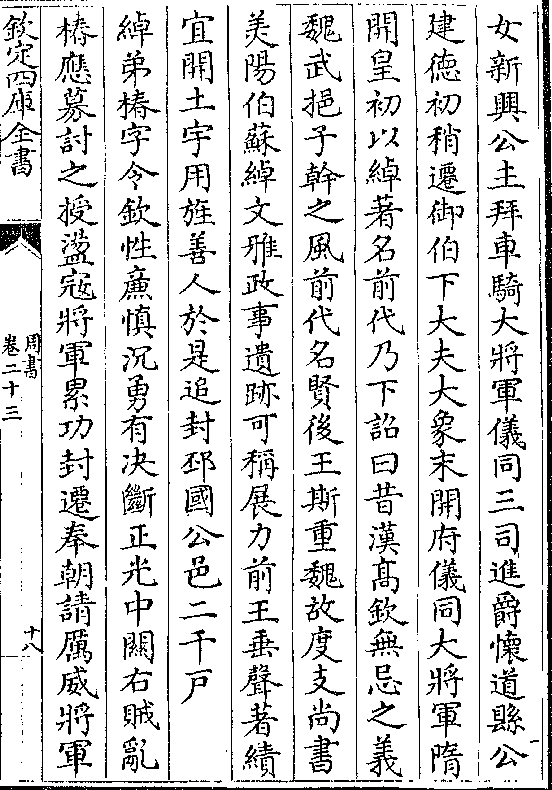 女新興公主拜車騎大將軍儀同三司進爵懷道縣公
建徳初稍遷御伯下大夫大象末開府儀同大將軍隋
開皇初以綽著名前代乃下詔曰昔漢髙欽無忌之義
魏武挹子幹之風前代名賢後王斯重魏故度支尚書
美陽伯蘇綽文雅政事遺跡可稱展力前王垂聲著績
宜開土宇用旌善人於是追封邳國公邑二千戸
綽弟椿字令欽性廉慎沉勇有决斷正光中闗右賊亂
椿應募討之授盪宼將軍累功封遷奉朝請厲威將軍
欽定四庫全書
周書
卷二十三
十八